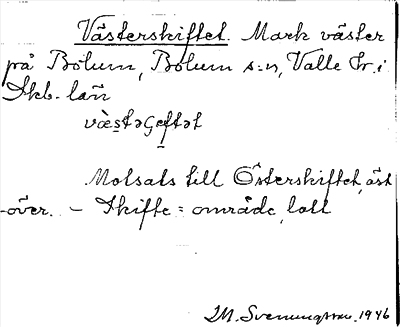 Västerskiftet. Mark väster
på Bolum, Bolum s:n, Valle hr. i
Skb. län
væ̀stəʂeftət
Motsats till Österskiftet, öst-
över. – Skifte = område, lott
M. Svenungsson. 1946